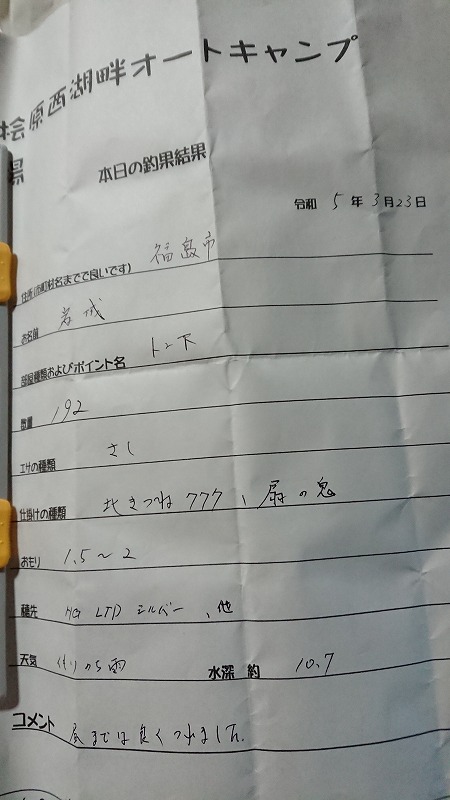 桧原西湖畔オートキャンプ
場
本日の釣果結果
令和 5 年 3 月 23 日
住所(市町村名までで良いです) 福島市
お名前 岩城
部屋種類およびポイント名
数量 192
エサの種類 さし
仕掛けの種類 北きつね 777、扇の鬼
おもり 1.5〜2
穂先 HG LTD シルバー、他
天気 くもりのち雨 水深 約 10.7
コメント 昼までは良くつれました。